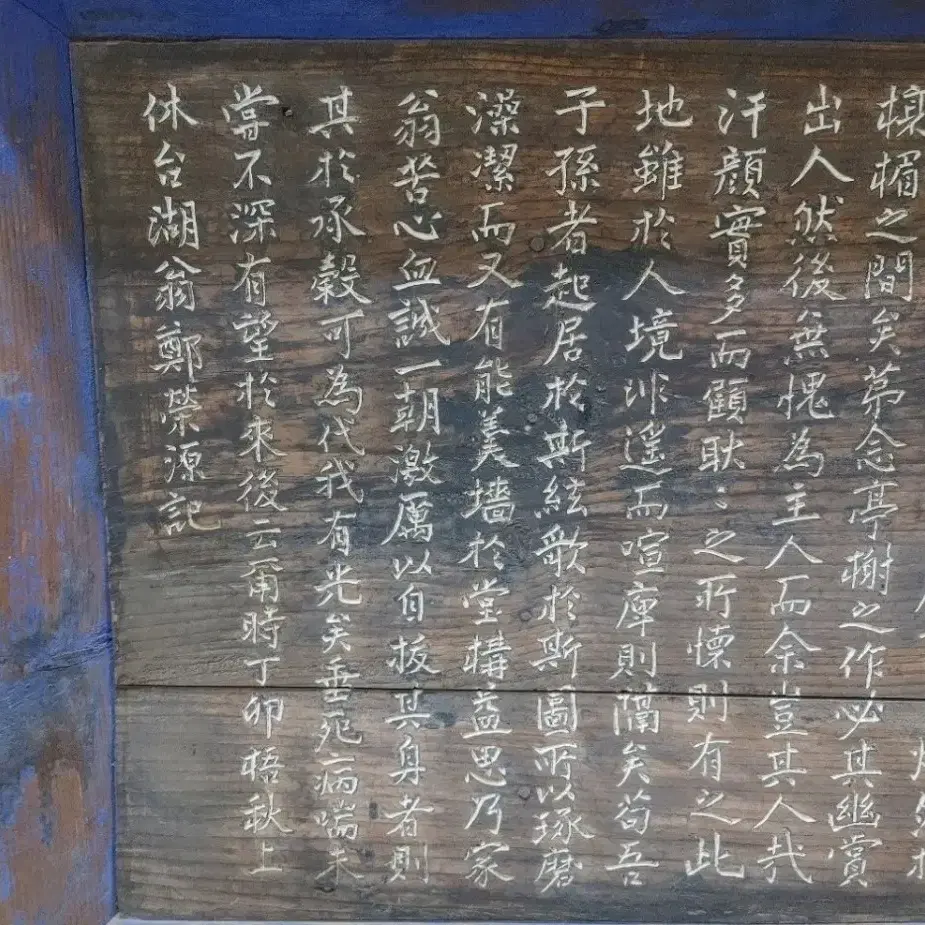 楣之間矣苐念亭榭之作必其幽賞
出人然後無愧為主人而余豈其人㢤
汗顔實多而顧耿〻之所懷則有之此
地雖於人境非遥而喧庳則隔矣苟吾
子孫者起居於斯絃歌於斯圖所以琢磨
澡潔而又有能羹墻於堂構益思乃家
翁苦心血誠一朝激厲以自拔其身者則
其於承穀可為代我有光矣垂死病喘未
嘗不深有望於來後云爾時丁卯梧秋上
休台湖翁鄭榮源記